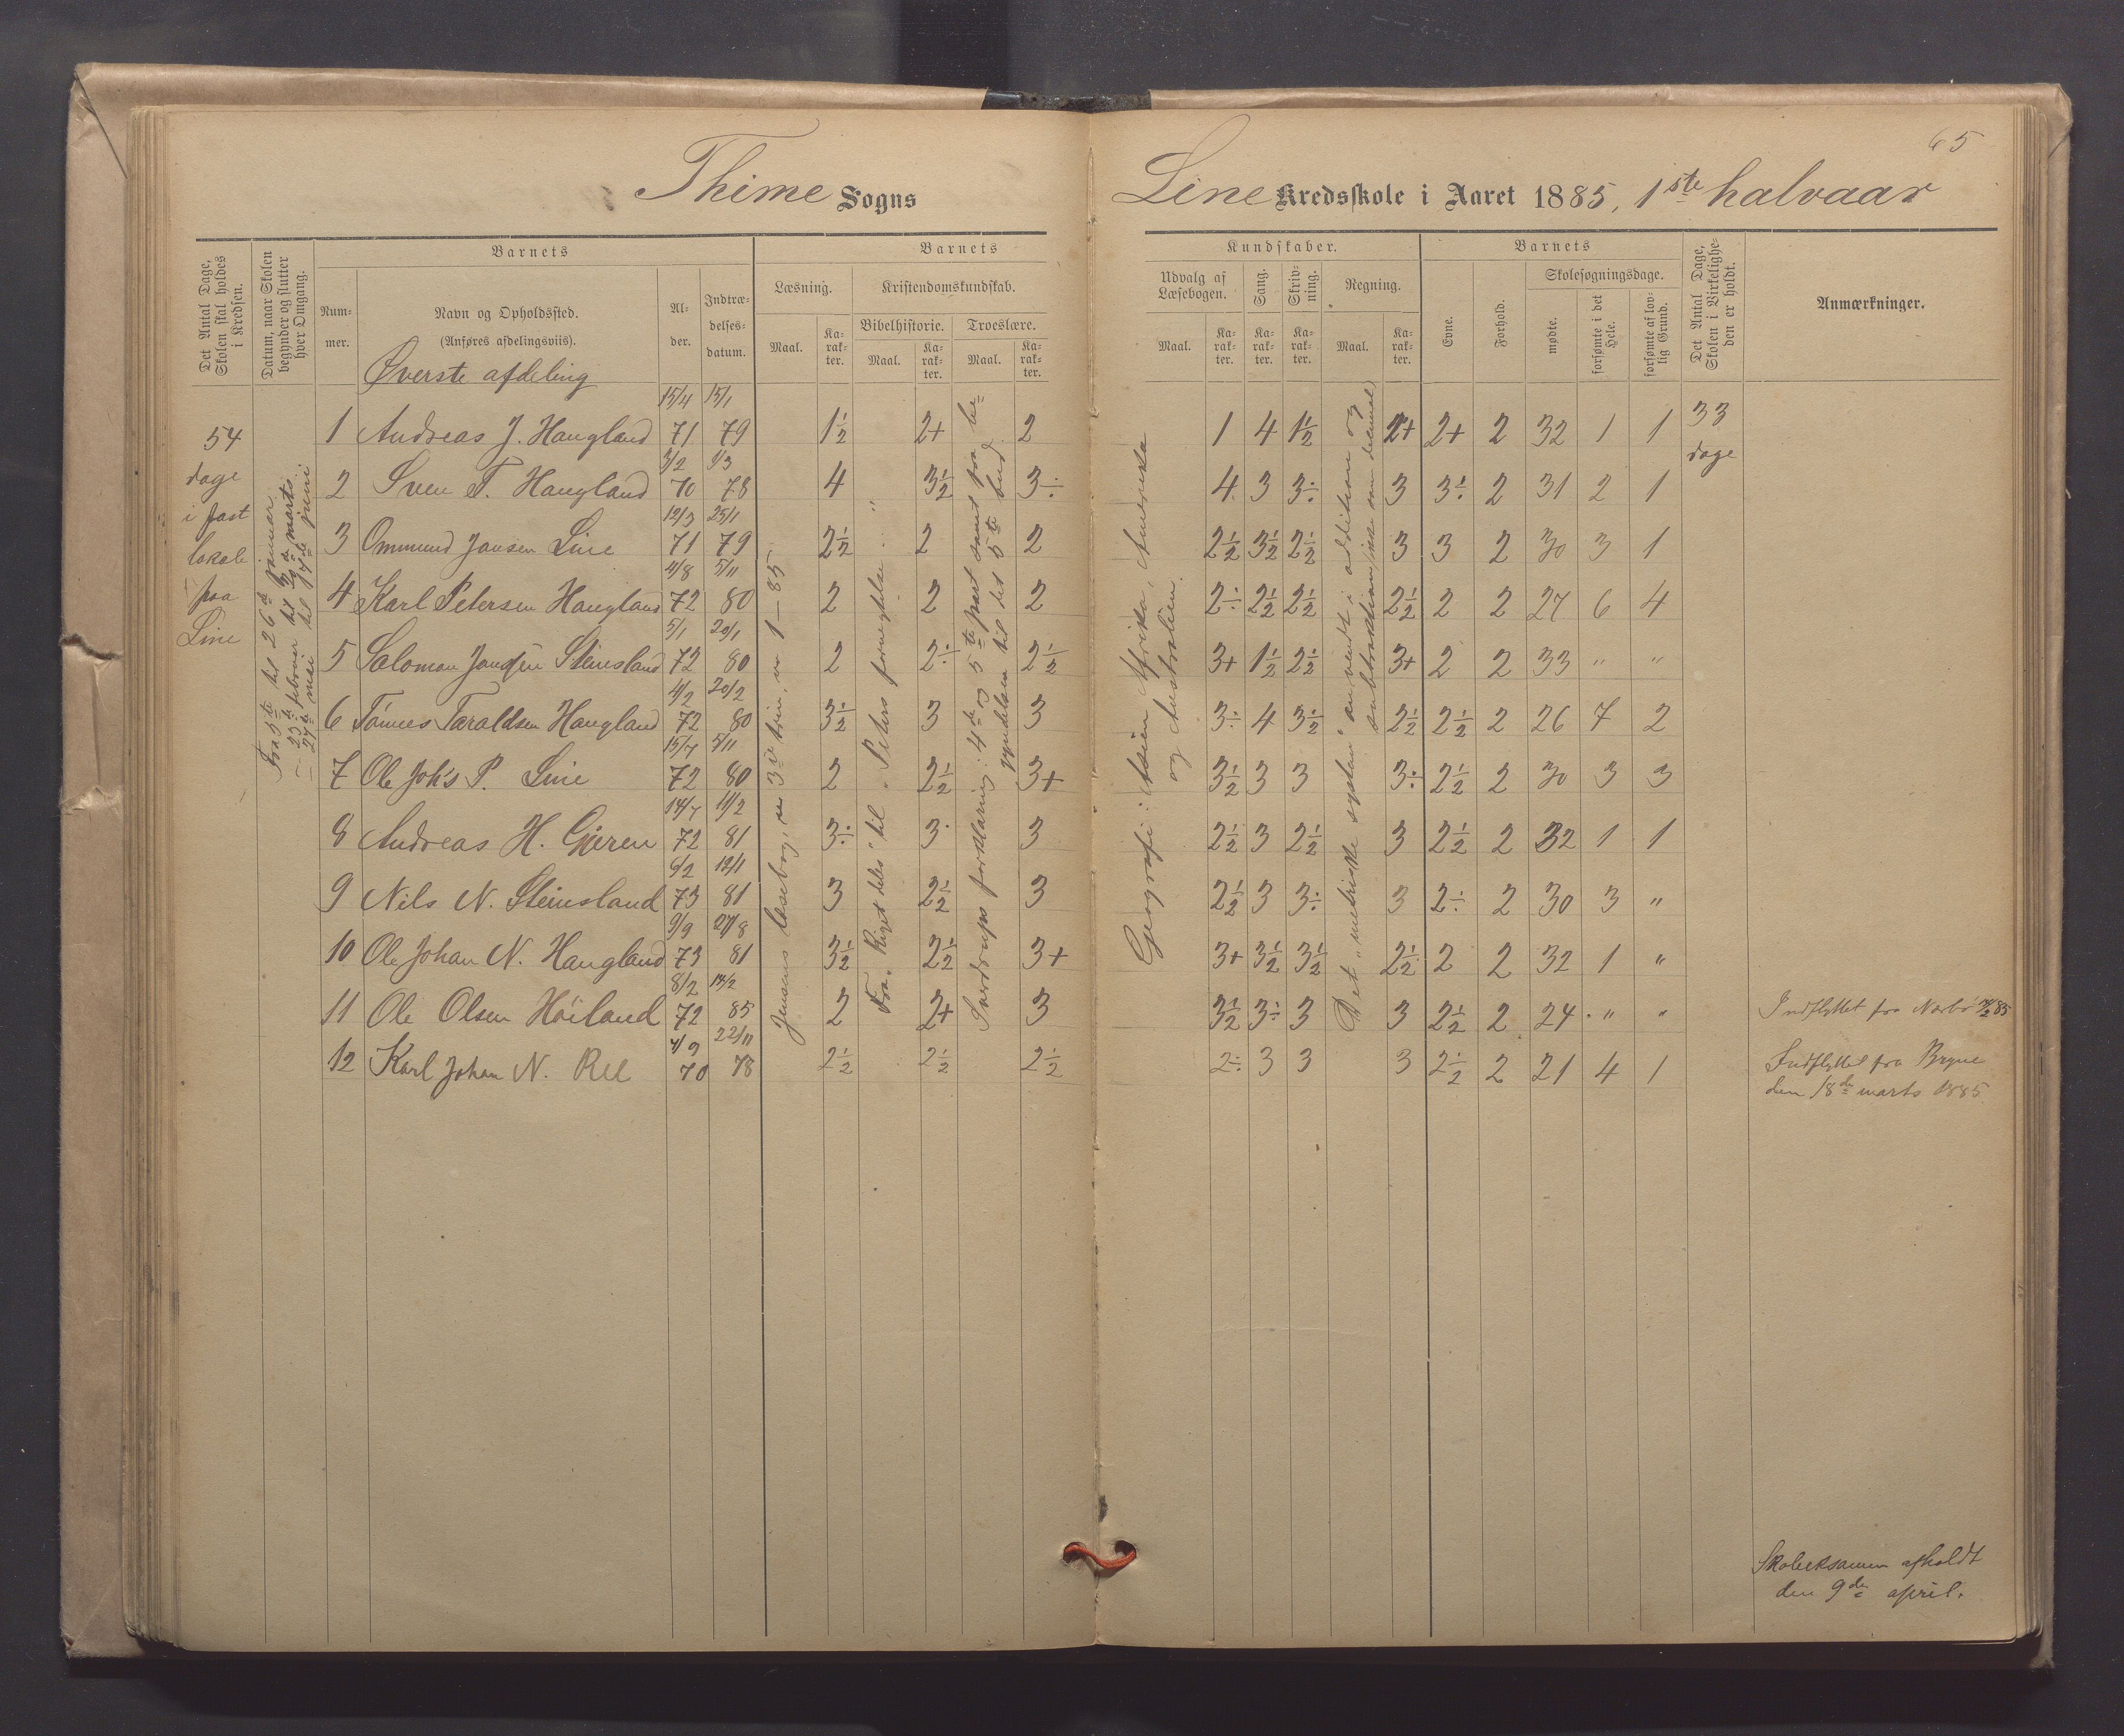 65
Thime Sogns
Line Kredsskole i Aaret 1885, 1ste halvaar
Det Antal Dage, Skolen skal holdes i Kredsen.
Datum, naar Skolen begynder og slutter hver Omgang.
Barnets
Num-mer.
Navn og Opholdssted.
(Anføres afdelingsviis).
Øverste afdeling
Al-der.
Indtræ-delses-datum.
Barnets
Læsning.
Maal.
Ka-rak-ter.
Kristendomskundskab.
Bibelhistorie.
Maal.
Ka-rak-ter.
Troeslære.
Maal.
Ka-rak-ter.
Kundskaber.
Udvalg af Læsebogen.
Maal.
Ka-rak-ter.
Sang.
Ka-rak-ter.
Skriv-ning.
Ka-rak-ter.
Regning.
Maal.
Ka-rak-ter.
Barnets
Evne.
Forhold.
Skolesøgningsdage.
mødte.
forsømte i det Hele.
forsømte af lov-lig Grund.
Det Antal Dage, Skolen i Virkelighe-den er holdt.
Anmærkninger.
54
dage
i fast
lokale
paa
Line
Fra 5te til 26de januar
– 23de februar til 9de marts
– 27de mai til 17de juni
Jensens læsebog, 3die trin, no 1 – 85
Fra „Riget deles" til „Peters fornegtelse"
Sverdrups forklaring: 4de og 5te part samt fra be-
gyndelsen til det 5te bud.
Geografi: Asien, Afrika, Amerika
og Australien.
Det „metriske system" anvendt i addition og
subtraktion (ikke om decimal)
1 Andreas J. Haugland 15/4 71 15/1 79 1½ 2+ 2 1 4 1½ 2+ 2+ 2 32 1 1 33 dage
2 Sven T. Haugland 3/2 70 1/3 78 4 3½ 3÷ 4 3 3÷ 3 3÷ 2 31 2 1
3 Ommund Jansen Line 12/3 71 25/1 79 2½ 2 2 2½ 3½ 2½ 3 3 2 30 3 1
4 Karl Petersen Haugland 4/8 72 5/11 80 2 2 2 2÷ 2½ 2½ 2½ 2 2 27 6 4
5 Salomon Jansen Steinsland 5/1 72 20/1 80 2 2÷ 2½ 3+ 1½ 2½ 3+ 2 2 33 " "
6 Tönnes Taraldsen Haugland 4/2 72 20/2 80 3½ 3 3 3÷ 4 3½ 2½ 2½ 2 26 7 2
7 Ole Joh's P. Line 15/7 72 5/11 80 2 2½ 3+ 3½ 3 3 3÷ 2½ 2 30 3 3
8 Andreas H. Gjeren 14/7 72 11/2 81 3÷ 3 3 2½ 3 2½ 3 2½ 2 32 1 1
9 Nils N. Steinsland 6/2 73 12/1 81 3 2½ 3 2½ 3 3÷ 3 2÷ 2 30 3 "
10 Ole Johan N. Haugland 9/9 73 27/8 81 3½ 2½ 3+ 3+ 3½ 3½ 2½ 2 2 32 1 "
11 Ole Olsen Höiland 8/2 72 14/2 85 2 2+ 3 3½ 3÷ 3 3 2½ 2 24 " " Indflyttet fra Nærbö 85
12 Karl Johan N. Ree 4/9 70 22/11 78 2½ 2½ 2½ 2÷ 3 3 3 2½ 2 21 4 1 Indflyttet fra Bryne
den 18de marts 1885.
Skoleeksamen afholdt
den 9de april.